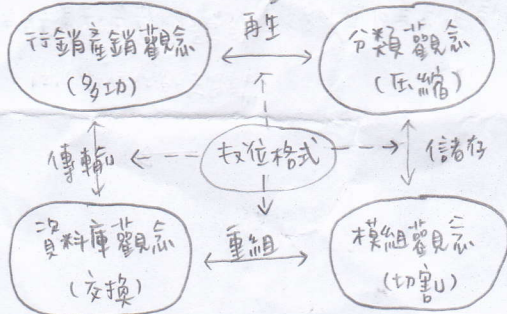 再生
行銷產銷觀念
(多功)
分類觀念
(压縮)
傳輸
数位格式
儲存
資料庫觀念
(交換)
重組
模組觀念
(切割)